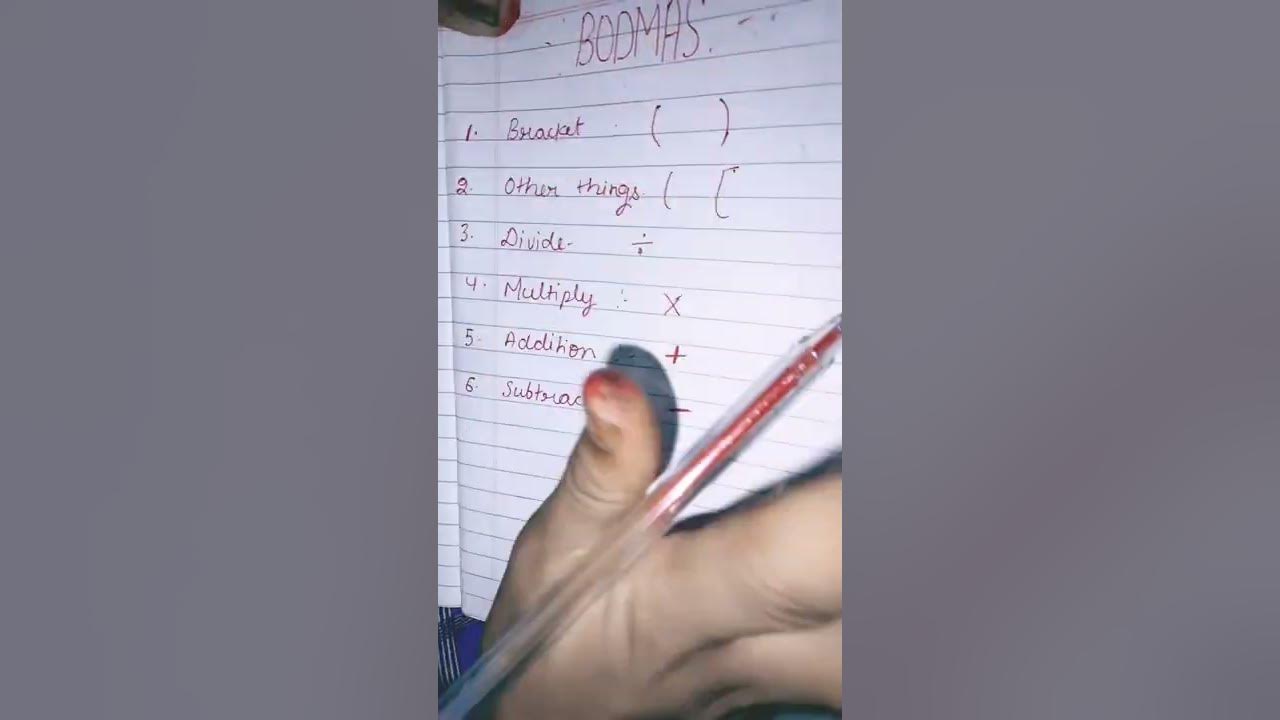 BODMAS.
1. Bracket . ( )
2. Other things. ( [
3. Divide- ÷
4. Multiply :- X
5. Addition +
6. -